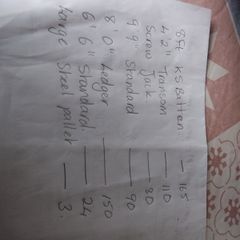 8ft KS Batten — 165
4'2" Transom — 110
Screw Jack — 80
9'9" Standard — 90
8'0" Ledger — 150
6'6" Standard — 24
Large Steel pallet — 3.